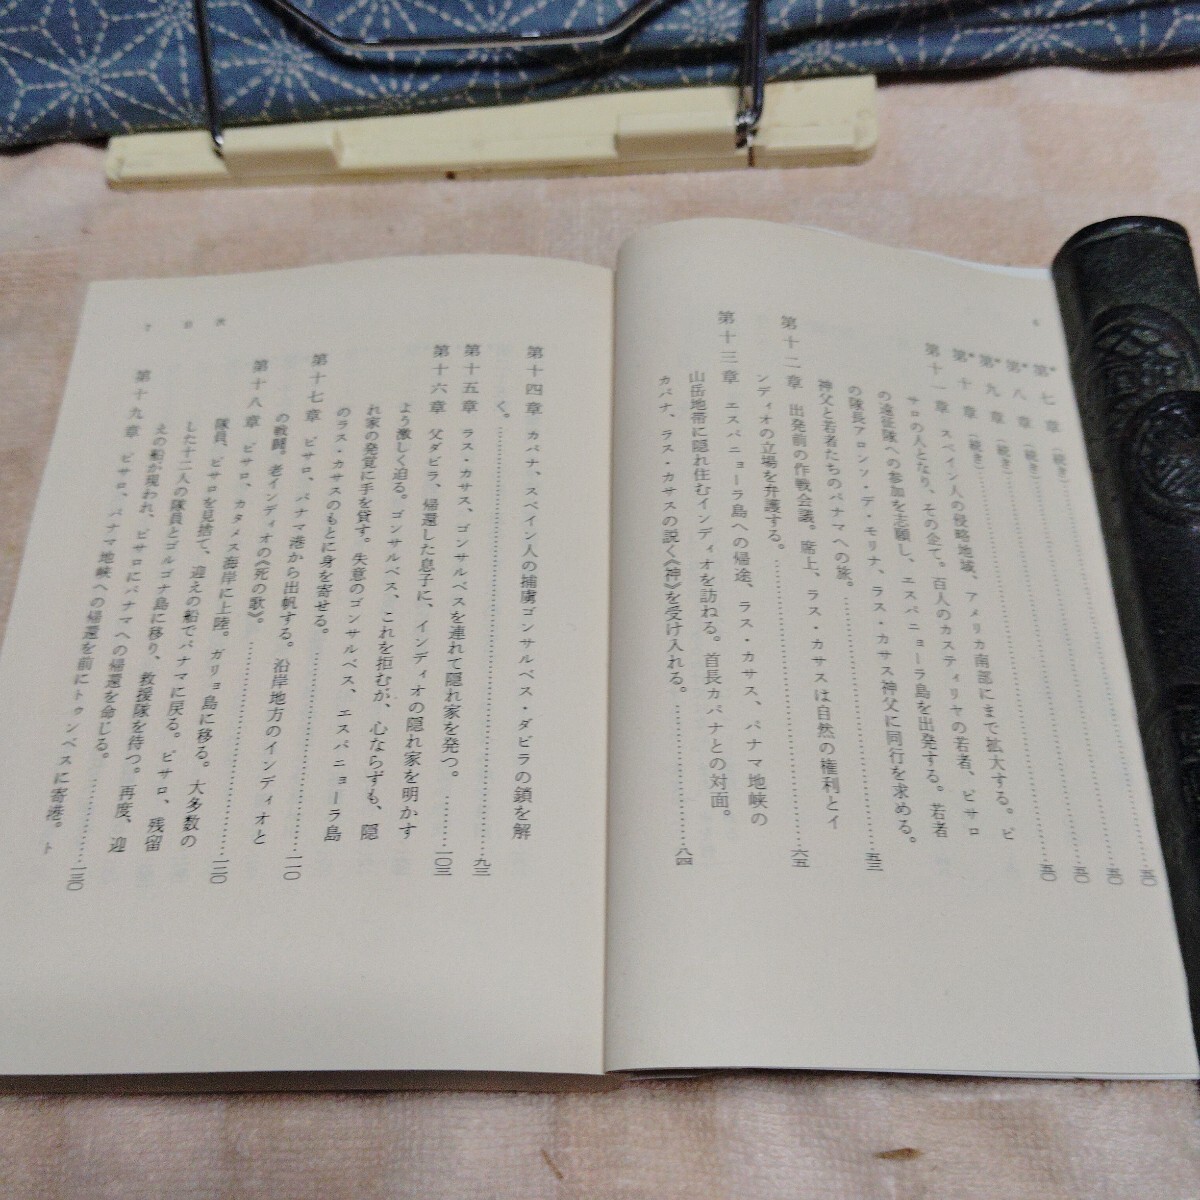 6
第*七章 (続き)……………五〇
第*八章 (続き)……………五〇
第*九章 (続き)……………五〇
第*十章 (続き)……………五〇
第十一章 スペイン人の侵略地域、アメリカ南部にまで拡大する。ピ
サロの人となり、その企て。百人のカスティリヤの若者、ピサロ
の遠征隊への参加を志願し、エスパニョーラ島を出発する。若者
の隊長アロンソ・デ・モリナ、ラス・カサス神父に同行を求める。
神父と若者たちのパナマへの旅。……………五三
第十二章 出発前の作戦会議。席上、ラス・カサスは自然の権利とイ
ンディオの立場を弁護する。……………六五
第十三章 エスパニョーラ島への帰途、ラス・カサス、パナマ地峡の
山岳地帯に隠れ住むインディオを訪ねる。首長カパナとの対面。
カパナ、ラス・カサスの説く《神》を受け入れる。……………八四
第十四章 カパナ、スペイン人の捕虜ゴンサルベス・ダビラの鎖を解
く。……………九三
第十五章 ラス・カサス、ゴンサルベスを連れて隠れ家を発つ。……………一〇三
第十六章 父ダビラ、帰還した息子に、インディオの隠れ家を明かす
よう激しく迫る。ゴンサルベス、これを拒むが、心ならずも、隠
れ家の発覚に手を貸す。失意のゴンサルベス、エスパニョーラ島
のラス・カサスのもとに身を寄せる。……………一一〇
第十七章 ピサロ、パナマ港から出帆する。沿岸地方のインディオと
の戦闘。老インディオの《死の歌》。……………一二〇
第十八章 ピサロ、カタメス海岸に上陸。ガリョ島に移る。大多数の
隊員、ピサロを見捨て、迎えの船でパナマに戻る。ピサロ、残留
した十二人の隊員とゴルゴナ島に移り、救援隊を待つ。再度、迎
えの船が現われ、ピサロにパナマへの帰還を命じる。……………一三〇
第十九章 ピサロ、パナマ地峡への帰還を前にトゥンベスに寄港。ト
7 目次